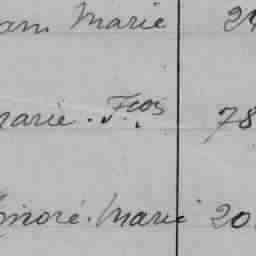 Marie 29
Marie . Fcois 78
Honoré. Marie 20